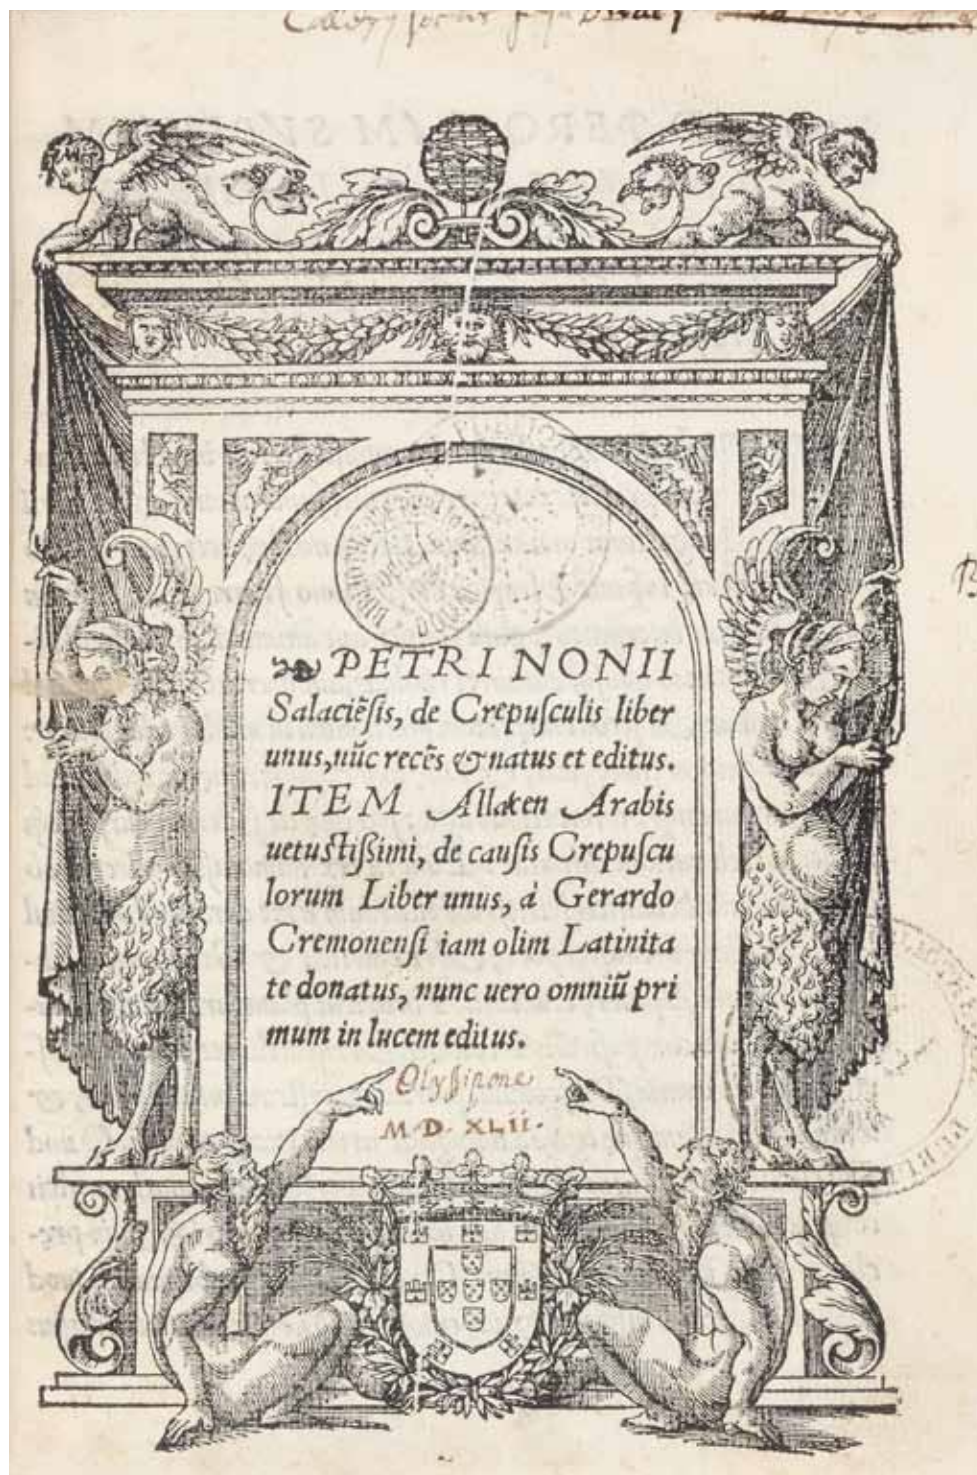 PETRI NONII
Salaciẽſis, de Crepuſculis liber
unus, nũc recẽs & natus et editus.
ITEM Allacen Arabis
uetuſtiſsimi, de cauſis Crepuſcu
lorum Liber unus, à Gerardo
Cremonenſi iam olim Latinita
te donatus, nunc uero omniũ pri
mum in lucem editus.
Olyſsipone
M.D.XLii.